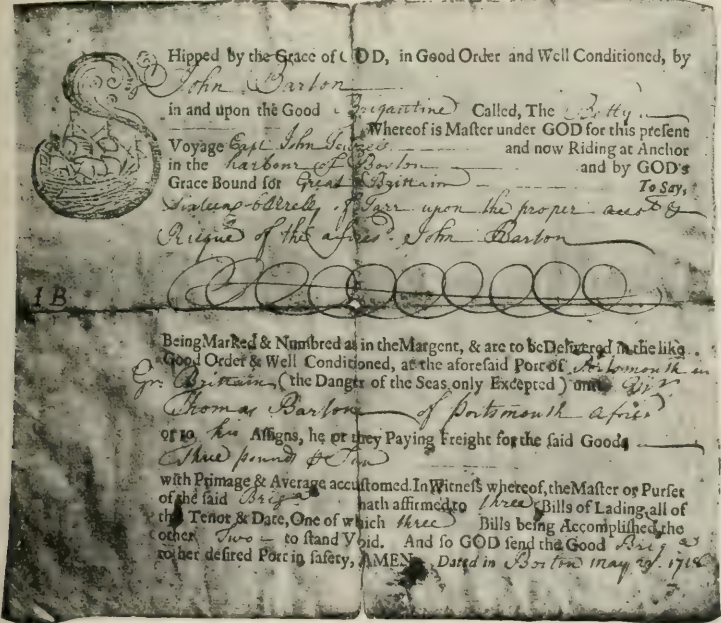 SHipped by the Grace of GOD, in Good Order and Well Conditioned, by
John Barton
in and upon the Good Brigantine Called, The Betty
Whereof is Master under GOD for this present
Voyage Capt John and now Riding at Anchor
in the harbour of Boston and by GOD's
Grace Bound for Great Brittain To Say,
Sixteen barrels of Tarr upon the proper accot &
Risque of the afores.d John Barton
I B
Being Marked & Numbred as in the Margent, & are to be Delivered in the like
Good Order & Well Conditioned, at the aforesaid Port of Portsmouth in
Gr. Brittain (the Danger of the Seas only Excepted) unto
Thomas Barton of portsmouth afores.d
or to his Assigns, he or they Paying Freight for the said Goods
three pounds & Ton
with Primage & Average accustomed. In Witness whereof, the Master or Purser
of the said Brig.a hath affirmed to three Bills of Lading, all of
this Tenor & Date, One of which three Bills being Accomplished, the
other Two to stand Void. And so GOD send the Good Brig.a
to her desired Port in safety, AMEN. Dated in Boston may 1718